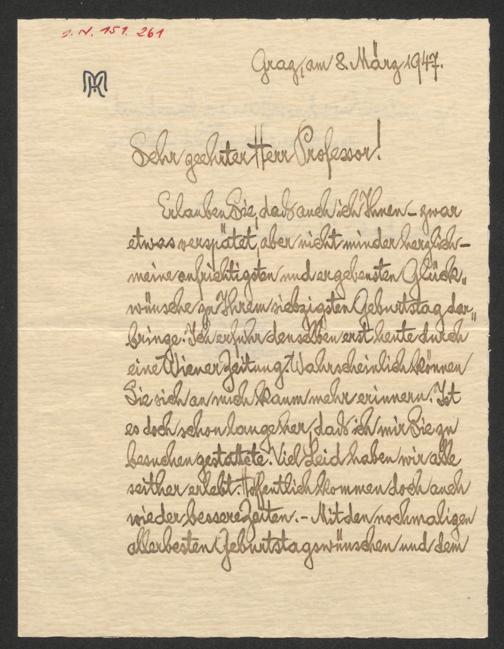 J. N. 151. 261
Graz, am 8. März 1947.
Sehr geehrter Herr Professor!
Erlauben Sie, daß auch ich Ihnen – zwar
etwas verspätet, aber nicht minder herzlich –
meine aufrichtigsten und ergebensten Glück„
wünsche zu Ihrem siebzigsten Geburtstag dar„
bringe. Ich erfuhr denselben erst heute durch
eine Wiener Zeitung. Wahrscheinlich können
Sie sich an mich kaum mehr erinnern. Ist
es doch schon lange her, daß ich mir Sie zu
besuchen gestattete. Viel Leid haben wir alle
seither erlebt. Hoffentlich kommen doch auch
wieder bessere Zeiten. – Mit den nochmaligen
allerbesten Geburtstagswünschen und dem